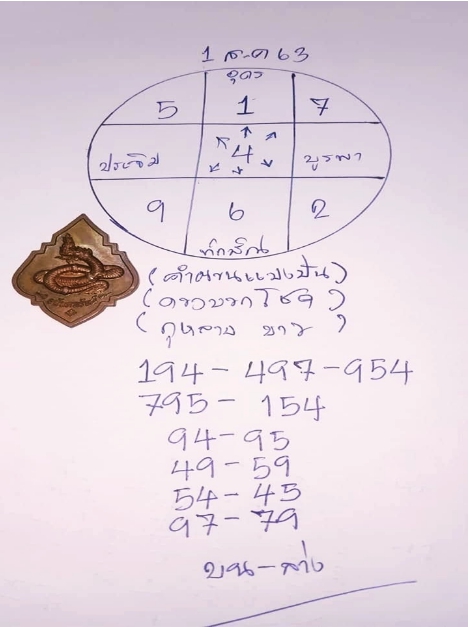 1 ส.ค 63
อุดร
5 1 7
ประจิม 4 บูรพา
9 6 2
ทักษิณ
(คำผวนแบ่งปัน)
(ดาวบรกโชค)
(กุหลาบ ขาว)
194 - 497 - 954
795 - 154
94 - 95
49 - 59
54 - 45
97 - 79
บน - ล่าง